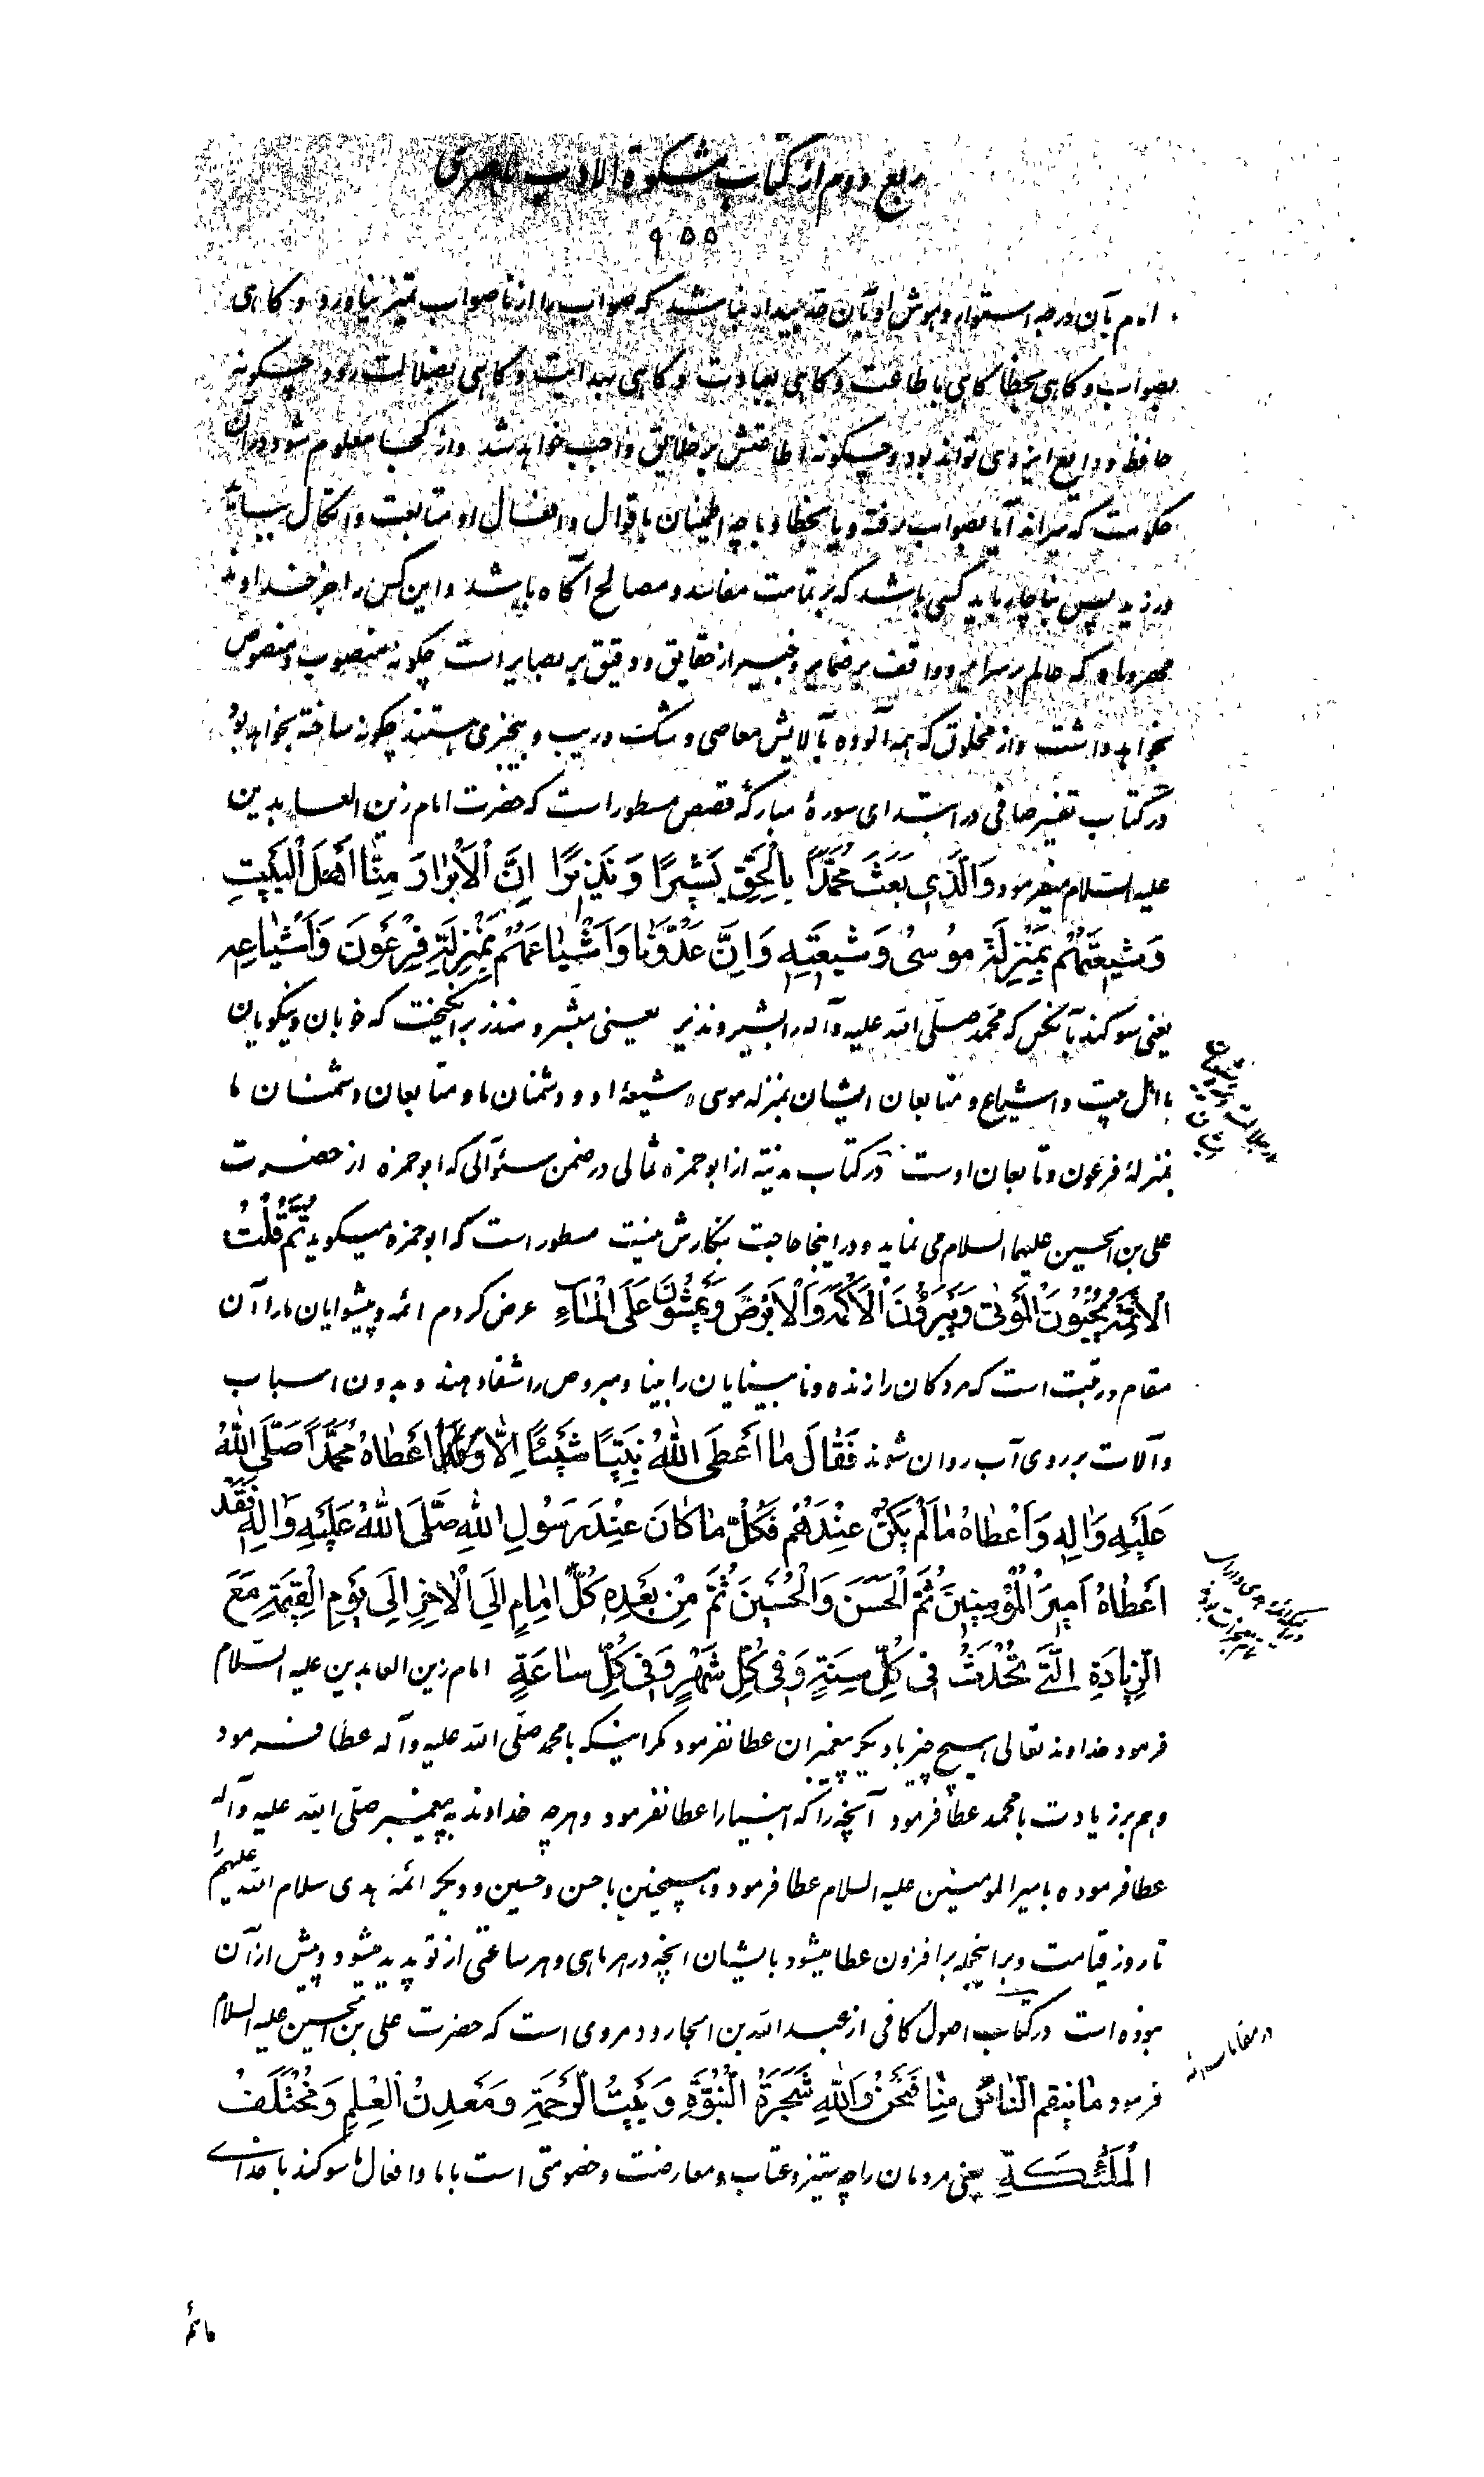 ربع دوم از کتاب مشکوة الادب ناصری
۹۵۵
امام بآن درجه استوار و هوش او بآن حد بیدار نباشد که صواب را از ناصواب تمیز نیاورد و کاهی
بصواب و کاهی بخطا کاهی باطاعت و کاهی بعبادت و کاهی بهدایت و کاهی بضلالت رود چکونه
حافظ ودایع ایزدی تواند بود و چکونه اطاعتش بر خلایق واجب خواهد شد واز کجا معلوم شود در آن
حکومت که میراند آیا بصواب رفته و یا بخطا و با چه اطمینان باقوال و افعال او متابعت و اتکال
ورزید پس بناچار باید کسی باشد که بر تمامت مفاسد و مصالح آکاه باشد واین کس را جز خداوند
که عالم بر سرایر و واقف بر ضمایر و خبیر از حقایق و دقیق بر بصایر است چکونه منصوب و منصوص
نخواهد داشت واز مخلوق که همه آلوده بآلایش معاصی و شک و ریب و بیخبری هستند چکونه ساخته نخواهد بود
در کتاب تفسیر صافی در ابتدای سورهٔ مبارکهٔ قصص مسطور است که حضرت امام زین العابدین
علیه السلام میفرمود وَالَّذی بَعَثَ مُحَمَّداً بِالْحَقِّ بَشیراً وَنَذیراً اِنَّ الْاَبْرارَ مِنّا اَهْلَ الْبَیْتِ
وَشیعَتَهُمْ بِمَنْزِلَةِ مُوسیٰ وَشیعَتِهِ وَاِنَّ عَدُوَّنا وَاَشْیاعَهُمْ بِمَنْزِلَةِ فِرْعَوْنَ وَاَشْیاعِهِ
یعنی سوکند بآنکس که محمد صلّی الله علیه وآله را بشیر و نذیر یعنی مبشر و منذر برانکیخت که خوبان و نیکویان
ما اهل بیت و اشیاع و متابعان ایشان بمنزله موسی و شیعهٔ او و دشمنان ما و متابعان دشمنان ما
بمنزلهٔ فرعون و تابعان اوست در کتاب مدینه از ابوحمزه ثمالی در ضمن سئوالی که ابوحمزه از حضرت
علی بن الحسین علیهما السلام می نماید و در اینجا حاجت بنکارش نیست مسطور است که ابوحمزه میکوید ثُمَّ قُلْتُ
الْاَئِمَّةُ یُحْیُونَ الْمَوْتیٰ وَیُبْرِؤُنَ الْاَکْمَهَ وَالْاَبْرَصَ وَیَمْشُونَ عَلَی الْماءِ عرض کردم ائمه و پیشوایان ما را آن
مقام و رتبت است که مردکان را زنده و نابینایان را بینا و مبروص را شفا دهند و بدون اسباب
وآلات بر روی آب روان شوند فَقالَ ما اَعْطَی اللهُ نَبِیّاً شَیْئاً اِلّا وَقَدْ اَعْطاهُ مُحَمَّداً صَلَّی اللهُ
عَلَیْهِ وَآلِهِ وَاَعْطاهُ مالَمْ یَکُنْ عِنْدَهُمْ فَکُلُّ ما کانَ عِنْدَ رَسُولِ اللهِ صَلَّی اللهُ عَلَیْهِ وَآلِهِ فَقَدْ
اَعْطاهُ اَمیرَ الْمُؤْمِنینَ ثُمَّ الْحَسَنَ وَالْحُسَیْنَ ثُمَّ مِنْ بَعْدِهِ کُلَّ اِمامٍ اِلَی الْاٰخِرِ اِلیٰ یَوْمِ الْقِیٰمَةِ مَعَ
الزِّیادَةِ الَّتی تُحْدَثُ فی کُلِّ سَنَةٍ وَفی کُلِّ شَهْرٍ وَفی کُلِّ ساعَةٍ امام زین العابدین علیه السلام
فرمود خداوند تعالی هیچ چیز با دیکر پیغمبران عطا نفرمود مکر اینکه با محمد صلّی الله علیه وآله عطا فرمود
وهم بر زیادت با محمد عطا فرمود آنچه را که انبیا را عطا نفرمود وهرچه خداوند به پیغمبر صلّی الله علیه وآله
عطا فرموده بامیر المومنین علیه السلام عطا فرمود وهمچنین با حسن و حسین و دیکر ائمهٔ هدی سلام الله علیهم را
تا روز قیامت و بر اینجمله بر افزون عطا میشود بایشان آنچه در هر ماهی وهر ساعتی از نو پدید میشود و پیش از آن
نبوده است در کتاب اصول کافی از عبد الله بن الجارود مروی است که حضرت علی بن الحسین علیه السلام
فرمود ما یَنْقِمُ النّاسُ مِنّا فَنَحْنُ وَاللهِ شَجَرَةُ النُّبُوَّةِ وَبَیْتُ الرَّحْمَةِ وَمَعْدِنُ الْعِلْمِ وَمُخْتَلَفُ
الْمَلٰئِکَةِ یعنی مردمان را چه ستیز و عتاب و معارضت و خصومتی است با ما و افعال ما سوکند با خدای
در مقامات ائمه